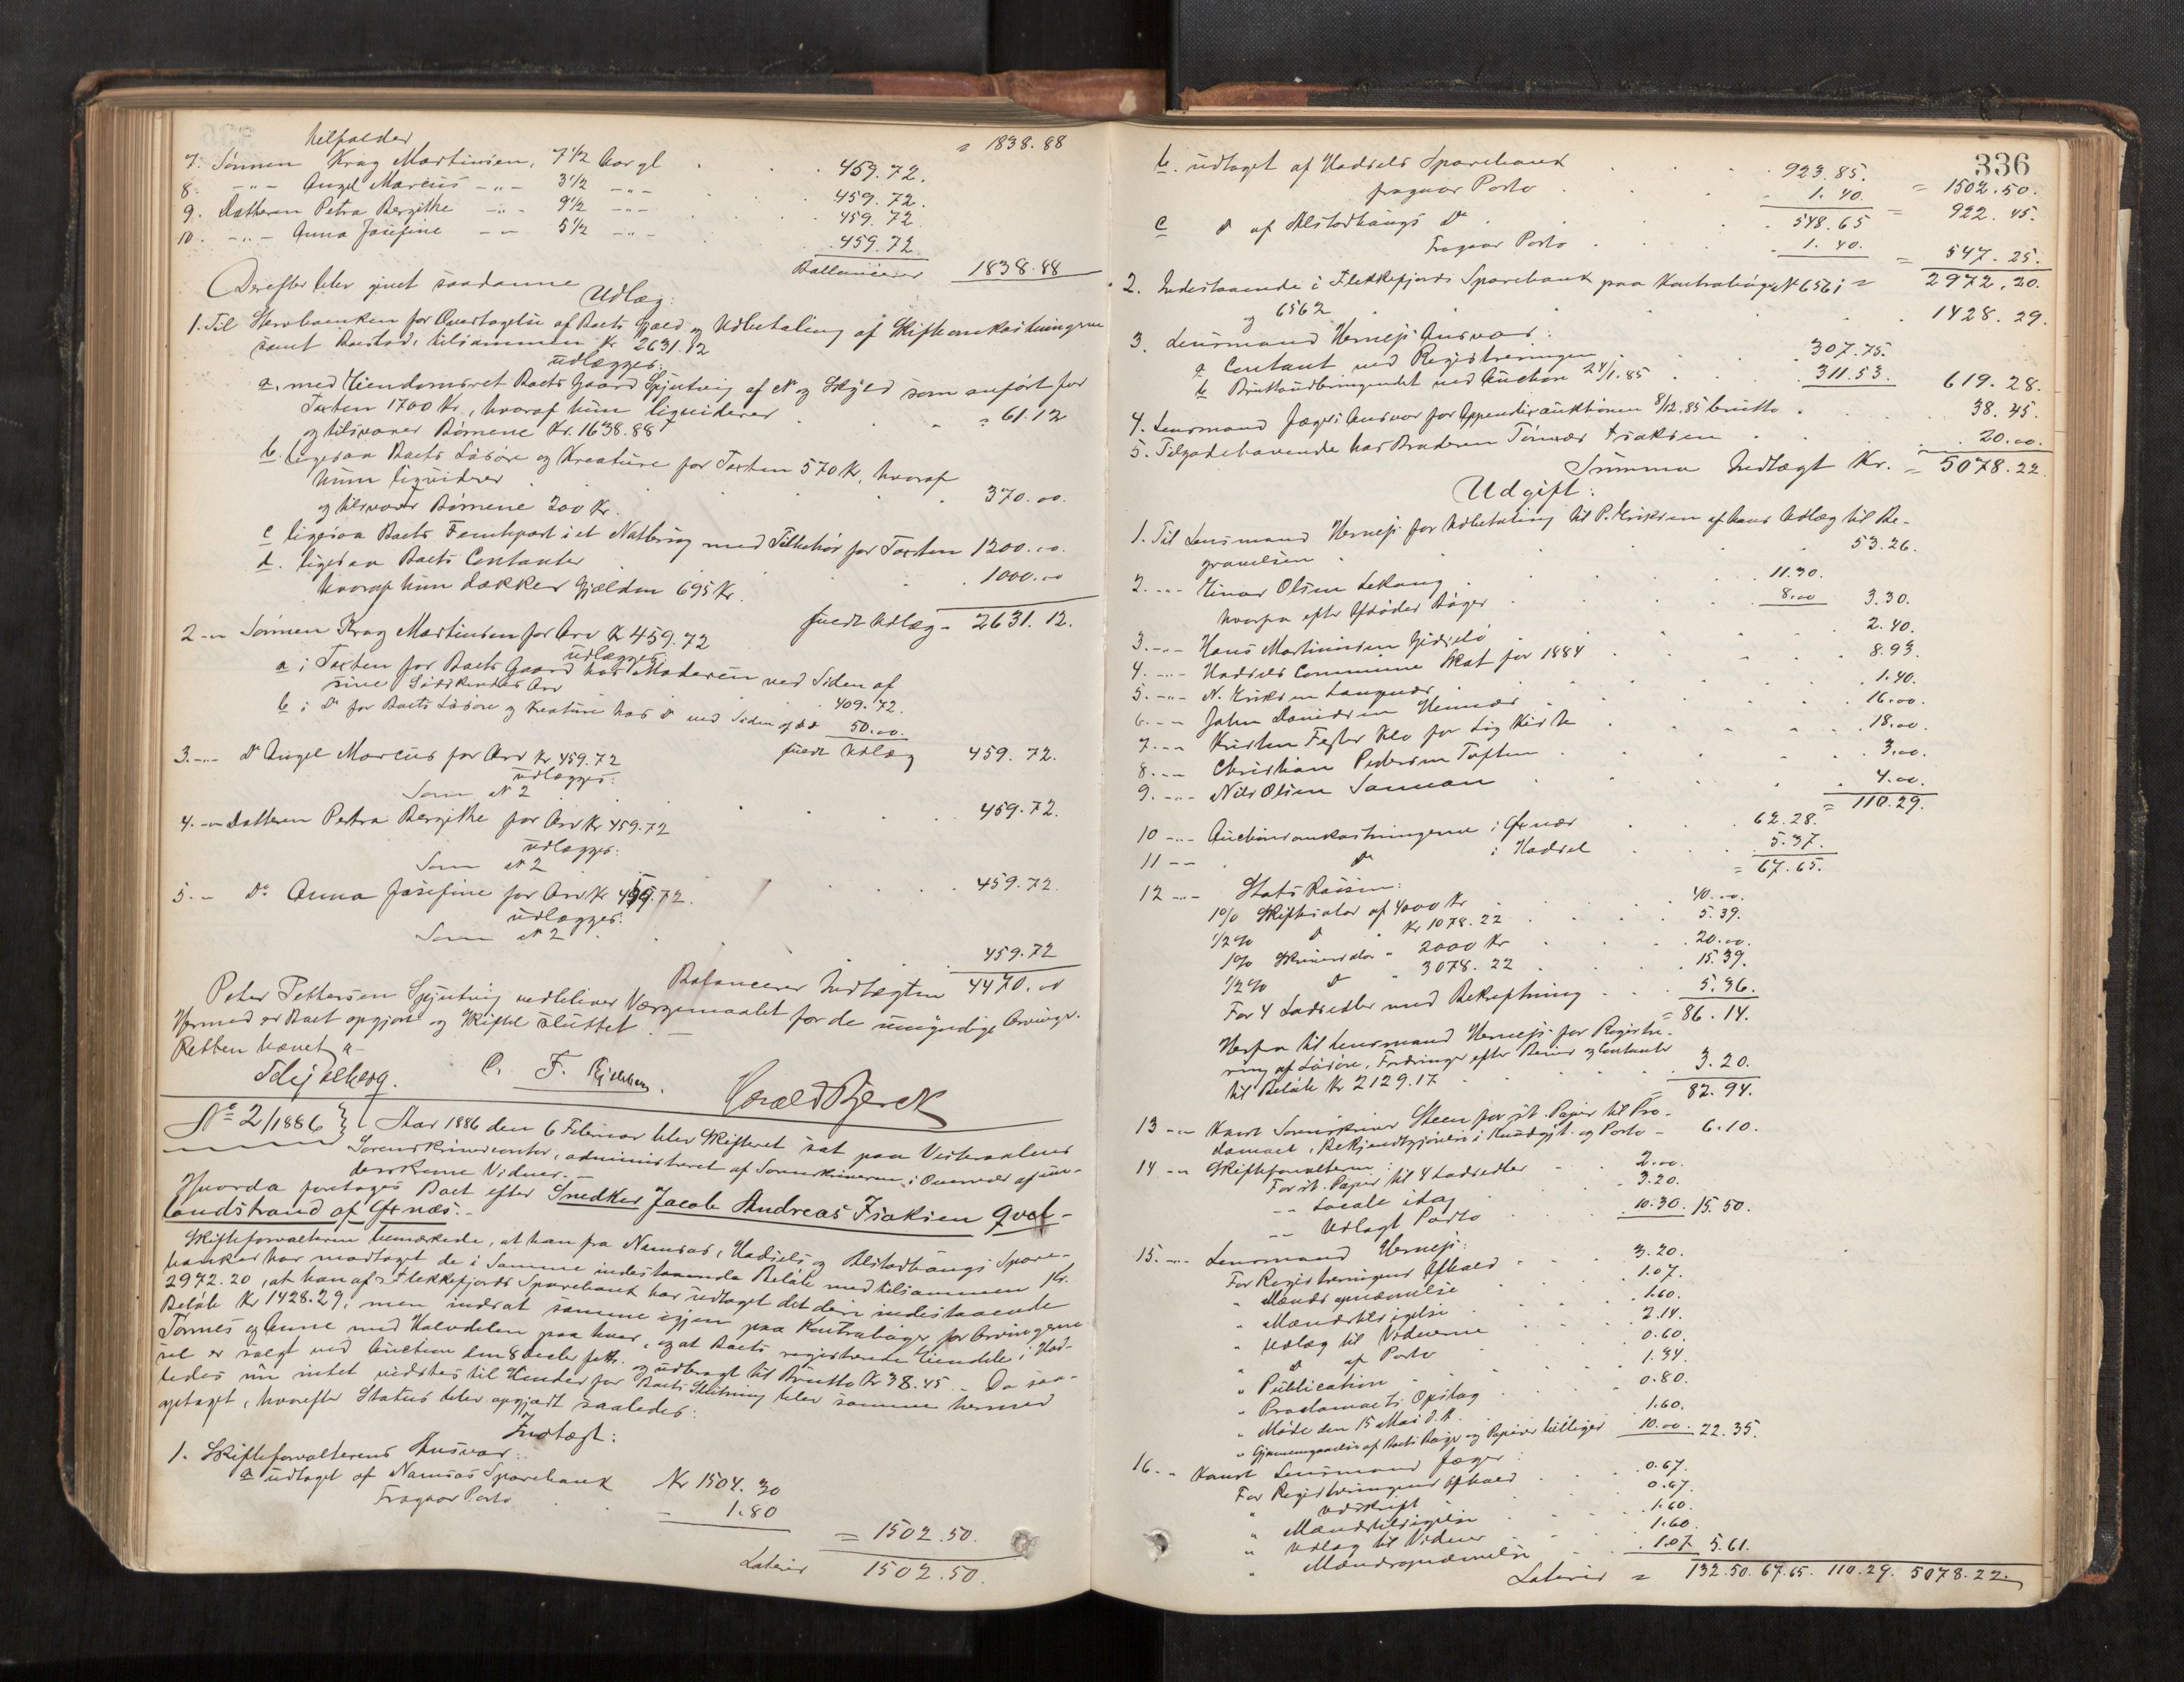 tilfalder = 1838.88
7. Sønnen Krag Martinsen, 7 1/2 Aar gl. 459.72.
8. -"- Angel Marcus -"- 3 1/2 -"- 459.72.
9. Datteren Petra Bergithe -"- 9 1/2 -"- 459.72
10. -"- Anna Josefine -"- 5 1/2 -"- 459.72
Ballancerer 1838.88
Derefter blev givet saadanne
Udlæg:
1. Til Stervboenken for Overtagelse af Boets Gjæld og Udbetaling af Skifteomkostningerne
samt Boeslod, tilsammen Kr 2631.12
udlægges:
a, med Eiendomsret Boets Gaard Spjutvig af No og Skyld som anført for
Taxten 1700 Kr., hvoraf hun liquiderer = 61.12
og tilsvarer Børnene Kr. 1638.88
b. ligesaa Boets Løsøre og Kreature for Taxten 570 Kr, hvoraf
hun liquiderer 370.00.
og tilsvarer Børnene 200 Kr.
c ligesaa Boets Femtepart i et Notbrug med Tilbehør for Taxten 1200.00.
d. ligesaa Boets Contanter 1000.00
hvoraf hun dækker Gjælden 695 Kr.
fuldt Udlæg = 2631.12.
2 -"- Sønnen Krag Martinsen for Arv Kr 459.72
udlægges
a i Taxten for Boets Gaard hos Moderen ved Siden af
sine Sødskendes Arv 409.72.
b i Do for Boets Løsøre og Kreature hos Do ved Siden af do 50.00.
fuldt Udlæg 459.72.
3. -"- Do Angel Marcus for Arv Kr 459.72
udlægges:
Som No 2 459.72.
4. -"- Datteren Petra Bergithe for Arv Kr 459.72
udlægges:
Som No 2 459.72.
5. -"- Do Anna Josefine for Arv Kr 459.72.
udlægges:
Som No 2 459.72
Balancerer Indtægten 4470.00
Peter Pettersen Spjutvig vedbliver Værgemaalet for de umyndige Arvinge.
Hermed er Boet opgjort og Skiftet sluttet.
Retten hævet.
C. F.
Harald Bjerck
No 2/1886 } Aar 1886 den 6 Februar blev Skifteret sat paa Vesteraalens
Sorenskrivercontor, administreret af Sorenskriveren, i Overvær af un-
derskrevne Vidner.
Hvorda foretoges Boet efter Snedker Jacob Andreas Isaksen Qval-
landstrand af Øxnæs.
Skifteforvalteren bemærkede, at han fra Namsos, Hadsels og Alstadhaugs Spare-
banker har modtaget de i Samme indestaaende Beløb med tilsammen Kr.
2972.20, at han af Flekkefjords Sparebank har udtaget det deri indestaaende
Beløb Kr 1428.29, men indsat samme igjen paa Kontrabøger for Arvingerne
Tønnes og Anne med Halvdelen paa hver, og at Boets registrerede Eiendele i Had-
sel er solgt ved Auction den 8 Decbr f. A. og udbragt til Brutto Kr 38.45. Da saa-
ledes nu intet vidstes til Hinder for Boets Slutning blev samme hermed
optaget, hvorefter Status blev opgjort saaledes:
Indtægt:
1. Skifteforvalterens Ansvar:
a udtaget af Namsos Sparebank Kr 1504.30
Fragaar Porto 1.80
= 1502.50.
Laterer 1502.50.
336
b. udtaget af Hadsels Sparebank 923.85. = 1502.50.
fragaar Porto 1.40 = 922.45.
c do af Alstadhaugs Do 548.65
Fragaar Porto 1.40. = 547.25.
2972.20.
2. Indestaaende i Flekkefjords Sparebank paa Kontrabøger No 6561 =
og 6562 1428.29.
3. Lensmand Hernejs Ansvar:
a Contant ved Registreringen 307.75.
b Bruttoudbringendet ved Auction 24/1.85 311.53. 619.28.
4. Lensmand Jægers Ansvar for Appendixauktionen 8/12.85 brutto 38.45.
5. Tilgodehavende hos Broderen Tønnes Isaksen 20.00.
Summa Indtægt Kr. = 5078.22.
Udgift:
1. Til Lensmand Hernejs for Udbetaling til P. Eriksen af hans Udlæg til Be-
gravelsen 53.26.
2. -"- Einar Olsen Lekang 11.30.
hvorfra efter Afdødes Bøger 8.00 3.30.
3. -"- Hans Martinussen 2.40.
4. -"- Hadsels Commune Skat for 1884 8.93.
5. -"- N. Eriksen Langnæs 1.40.
6. -"- John Danielsen 16.00.
7. -"- for Ligkiste 18.00
8. -"- Christian Pedersen Toften 3.00.
9. -"- Nils Olsen 4.00.
= 110.29.
10 -"- Auctionsomkostningerne i Øxnæs 62.28.
11 -"- Do i Hadsel 5.37.
= 67.65.
12 -"- Statskassen:
1% Skiftesalær af 4000 Kr 40.00.
1/2% do " Kr 1078.22 5.39.
1% Skriversalær " 2000 Kr 20.00.
1/2% do " 3078.22 15.39.
For 4 Lodsedler med Bekræftning 5.36.
= 86.14.
Herfra til Lensmand Hernejs for Registre-
ring af Løsøre, Fordringer efter Beviis og Contanter
til Beløb Kr 2129.17 3.20.
82.94.
13 -"- Const Sorenskriver Steen for st. Papir til Pro-
clamaet, Bekjendtgjørelse i Kundgjt. og Porto 6.10.
14 -"- Skifteforvalteren:
For st. Papir til 4 Lodsedler 2.00.
-"- Locale idag 3.20.
-"- Udlagt Porto 10.30. 15.50.
15. -"- Lensmand Hernejs:
For Registreringens Afhold 3.20.
" Mænds opnævnelse 1.07.
" Mændstilsigelse 1.60.
" Udlæg til Vidnerne 2.14.
" do af Porto 0.60.
" Publication 1.34.
" Proclamaets Opslag 0.80.
" Møde den 15 Mai d. A. 1.60.
" Gjennemgaaelse af Boets Bøger og Papirer billiget 10.00. 22.35.
16. " Const Lensmand Jæger:
For Registreringens Afhold 0.67.
" Udskrift 0.67.
" Mændstilsigelse 1.60.
" Udlæg til Vidner 1.60.
" Mændsopnævnelse 1.07 5.61.
Laterer = 132.50. 67.65. 110.29. 5078.22.